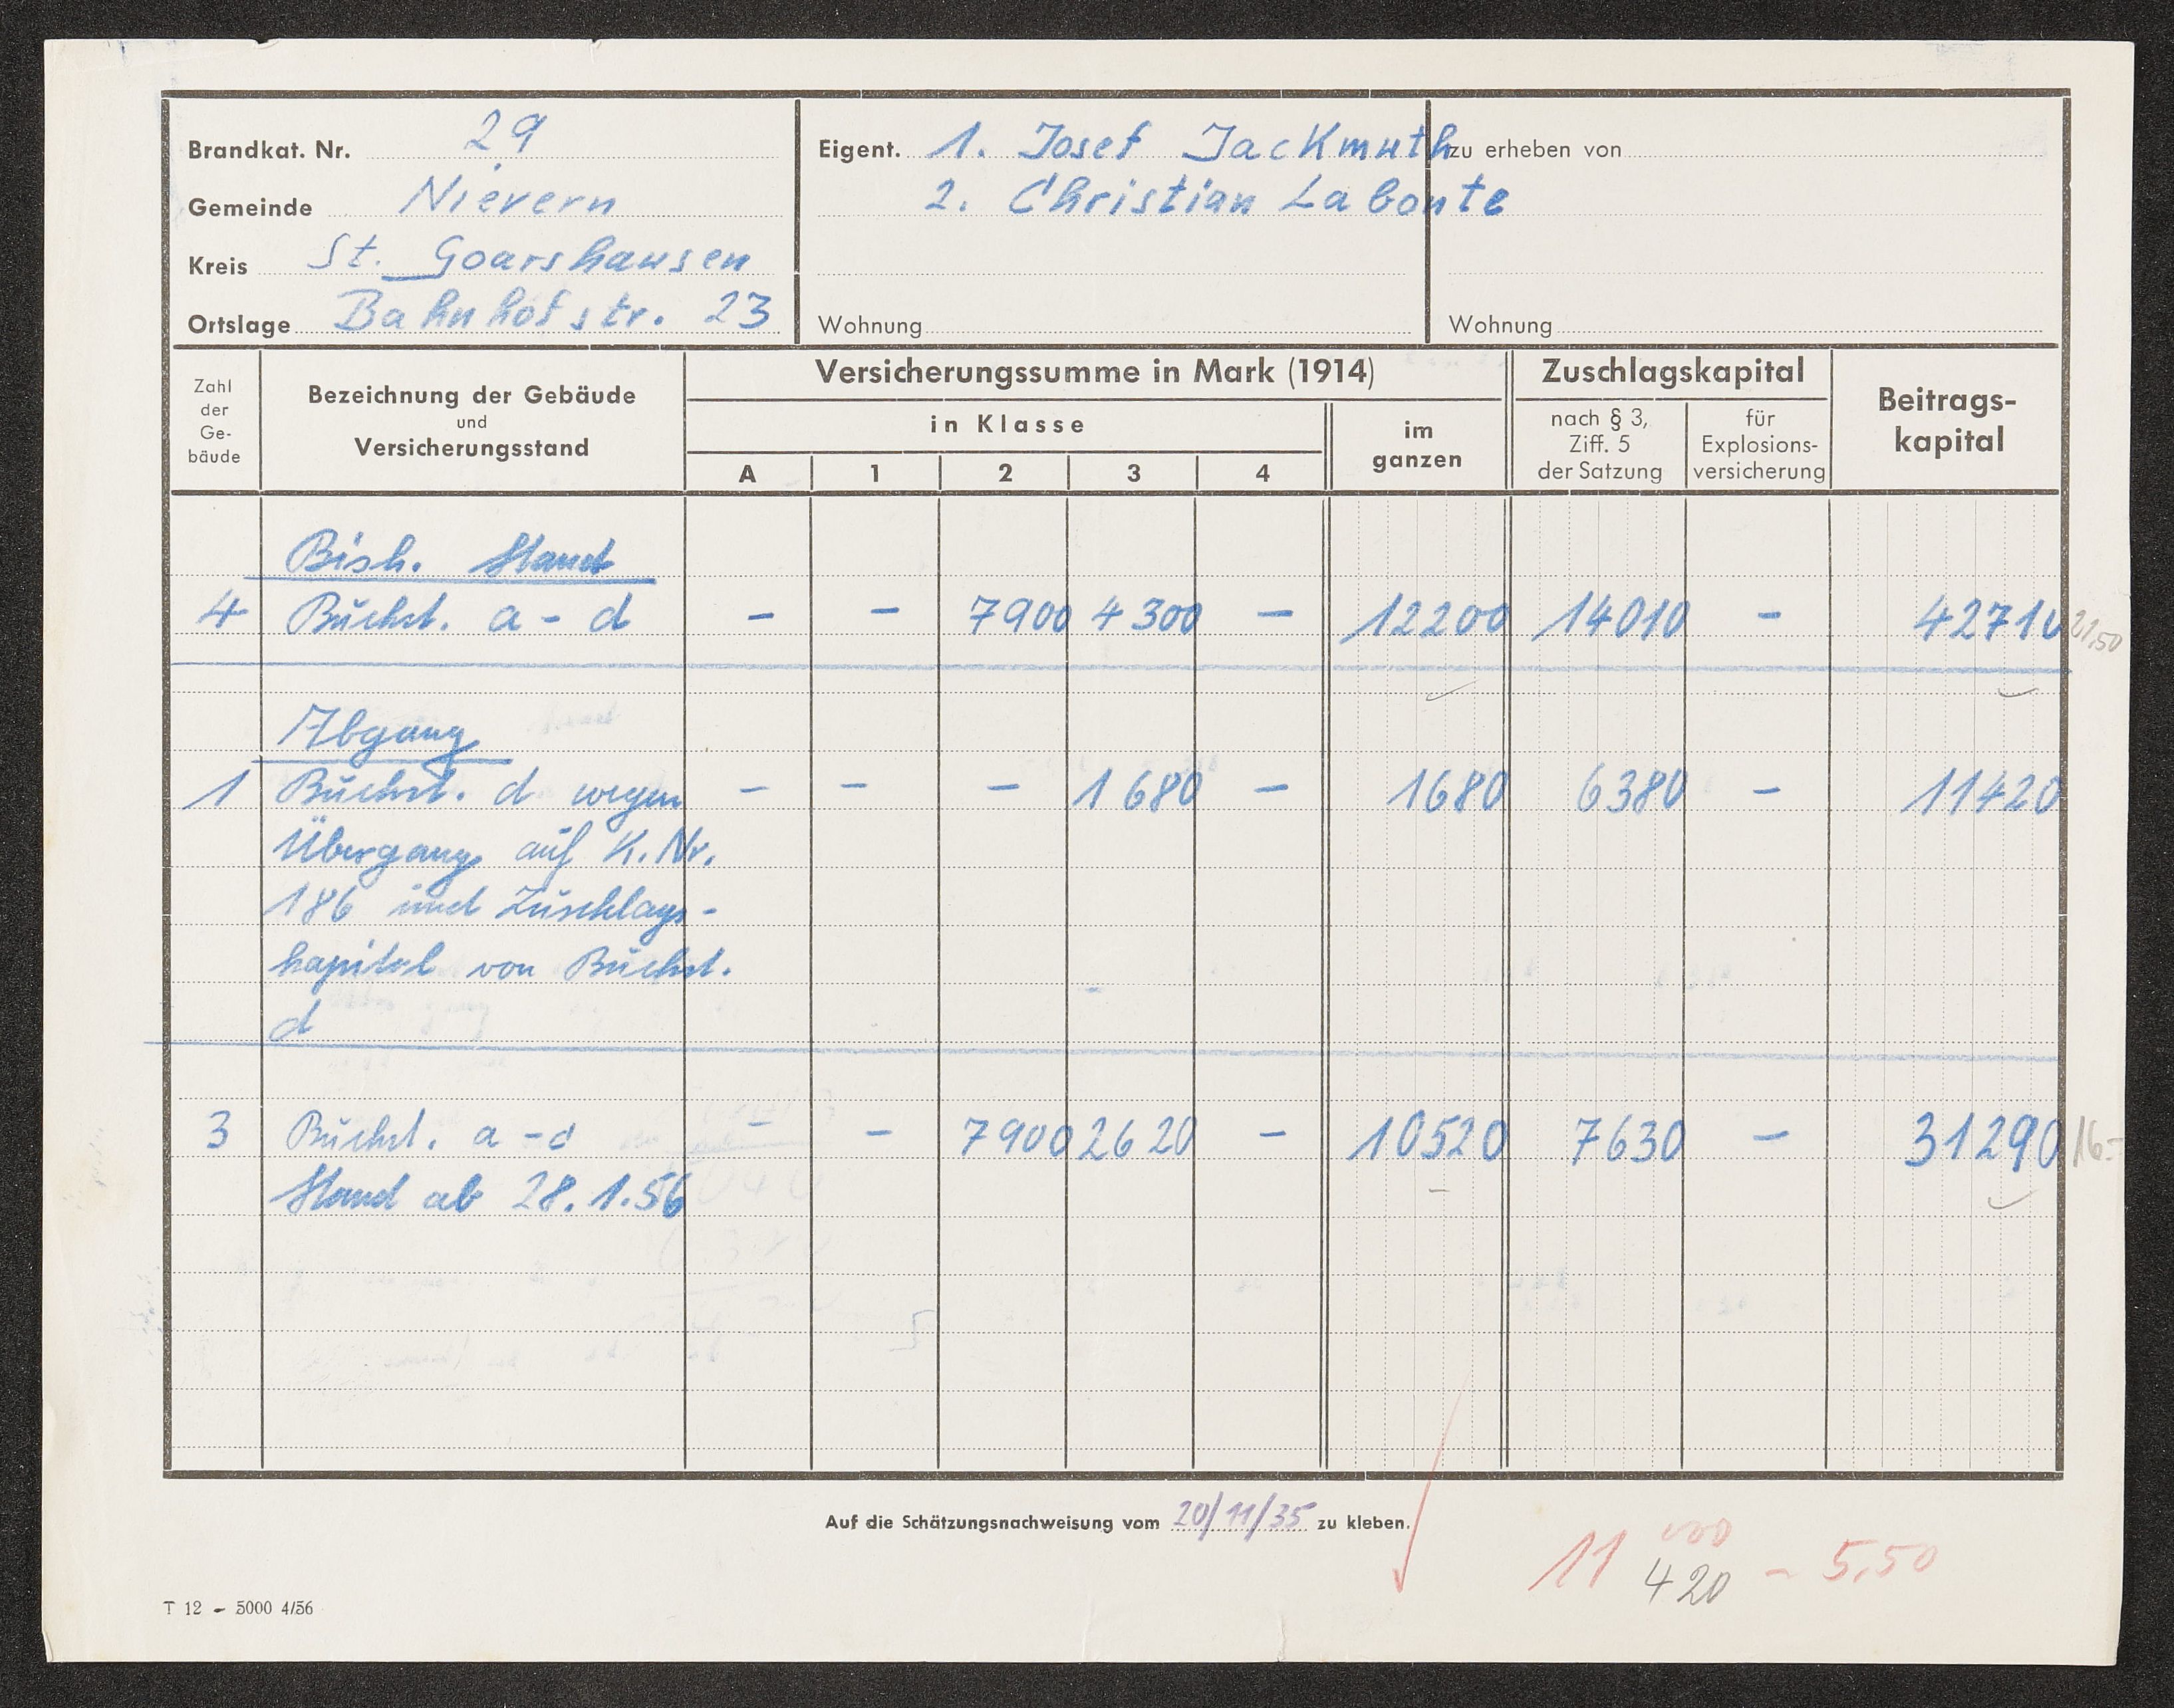 Brandkat. Nr. 29
Gemeinde Nievern
Kreis St. Goarshausen
Ortslage Bahnhofstr. 23
Eigent. 1. Josef Jackmuth
2. Christian Labonte
Wohnung
zu erheben von
Wohnung
Zahl der Ge- bäude
Bezeichnung der Gebäude
und
Versicherungsstand
Versicherungssumme in Mark (1914)
in Klasse
A 1 2 3 4
im ganzen
Zuschlagskapital
nach § 3, Ziff. 5 der Satzung
für Explosions- versicherung
Beitrags- kapital
Bish. Stand
4 Buchst. a - d - - 7900 4300 - 12200 14010 - 42710 21,50
Abgang
1 Buchst. d wegen - - - 1680 - 1680 6380 - 11420
Übergang auf K. Nr.
186 und Zuschlags-
kapital von Buchst.
d
3 Buchst. a - d - - 7900 2620 - 10520 7630 - 31290 16.-
Stand ab 28.1.56
Auf die Schätzungsnachweisung vom 20/11/35 zu kleben.
11 000 - 5,50
420
T 12 - 5000 4/56